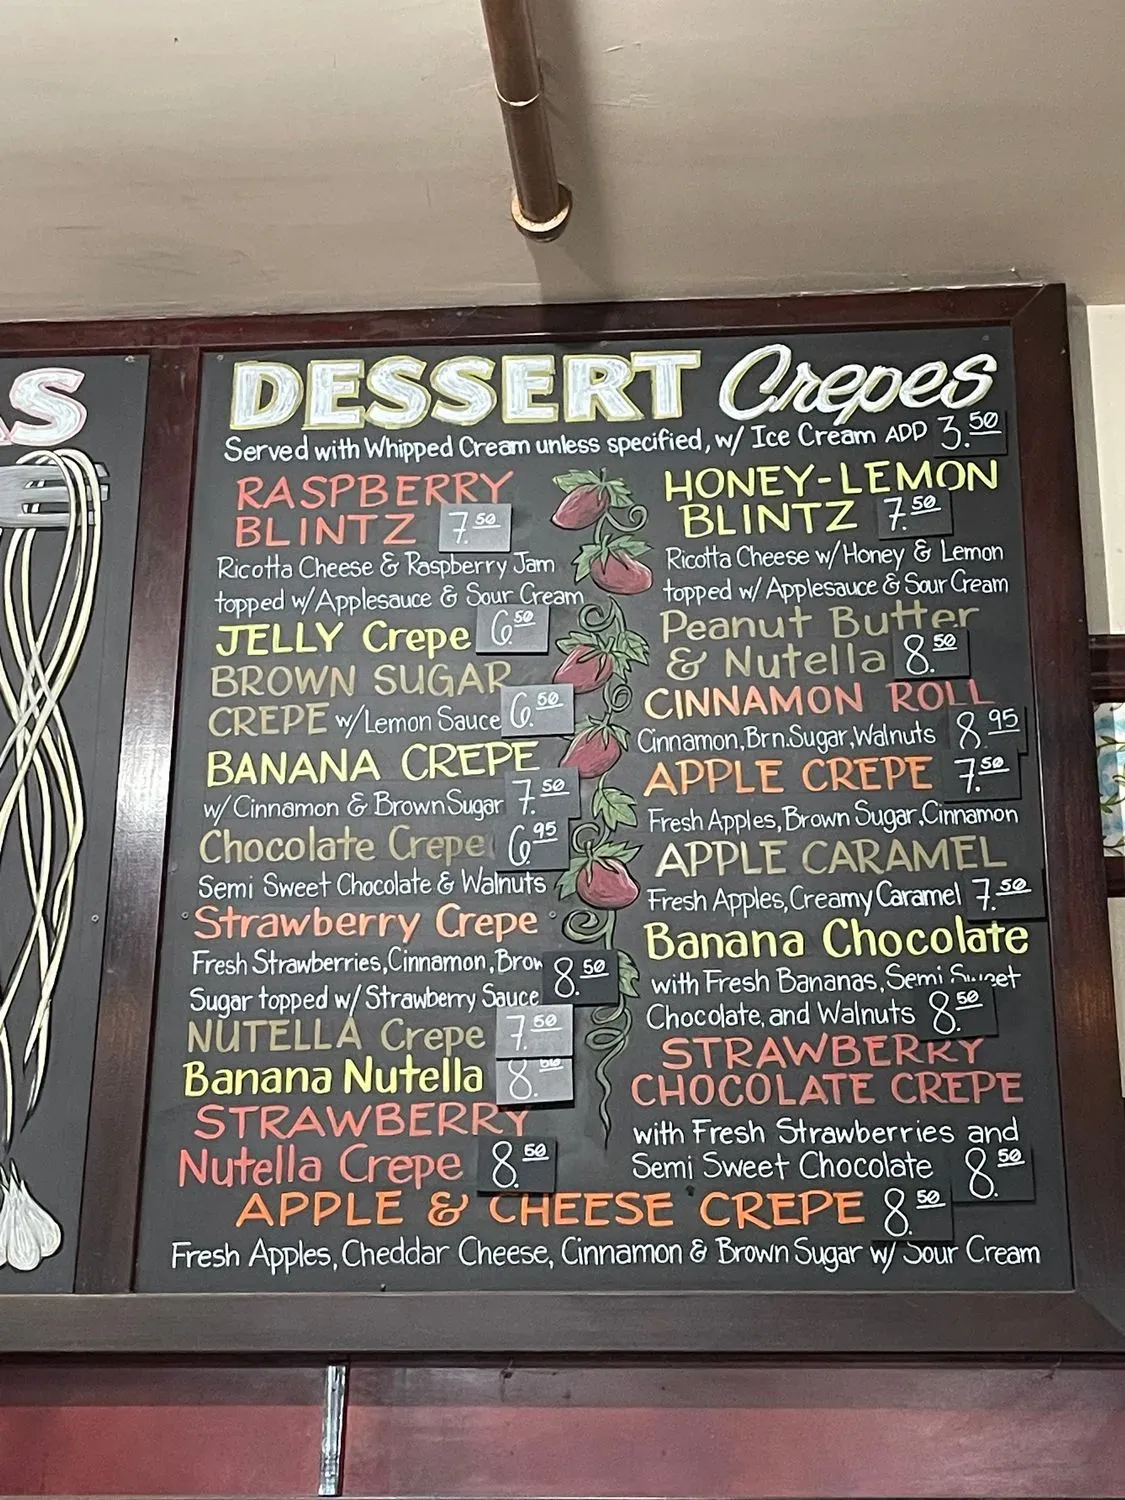 AS
DESSERT Crepes
Served with Whipped Cream unless specified, w/ Ice Cream ADD 3.50
RASPBERRY
BLINTZ 7.50
Ricotta Cheese & Raspberry Jam
topped w/ Applesauce & Sour Cream
JELLY Crepe 6.50
BROWN SUGAR
CREPE w/ Lemon Sauce 6.50
BANANA CREPE
w/ Cinnamon & Brown Sugar 7.50
Chocolate Crepe 6.95
Semi Sweet Chocolate & Walnuts
Strawberry Crepe
Fresh Strawberries, Cinnamon, Brow
Sugar topped w/ Strawberry Sauce 8.50
NUTELLA Crepe 7.50
Banana Nutella 8.
STRAWBERRY
Nutella Crepe 8.50
HONEY-LEMON
BLINTZ 7.50
Ricotta Cheese w/ Honey & Lemon
topped w/ Applesauce & Sour Cream
Peanut Butter
& Nutella 8.50
CINNAMON ROLL
Cinnamon, Brn. Sugar, Walnuts 8.95
APPLE CREPE 7.50
Fresh Apples, Brown Sugar, Cinnamon
APPLE CARAMEL
Fresh Apples, Creamy Caramel 7.50
Banana Chocolate
with Fresh Bananas, Semi Sweet
Chocolate, and Walnuts 8.50
STRAWBERRY
CHOCOLATE CREPE
with Fresh Strawberries and
Semi Sweet Chocolate 8.50
APPLE & CHEESE CREPE 8.50
Fresh Apples, Cheddar Cheese, Cinnamon & Brown Sugar w/ Sour Cream